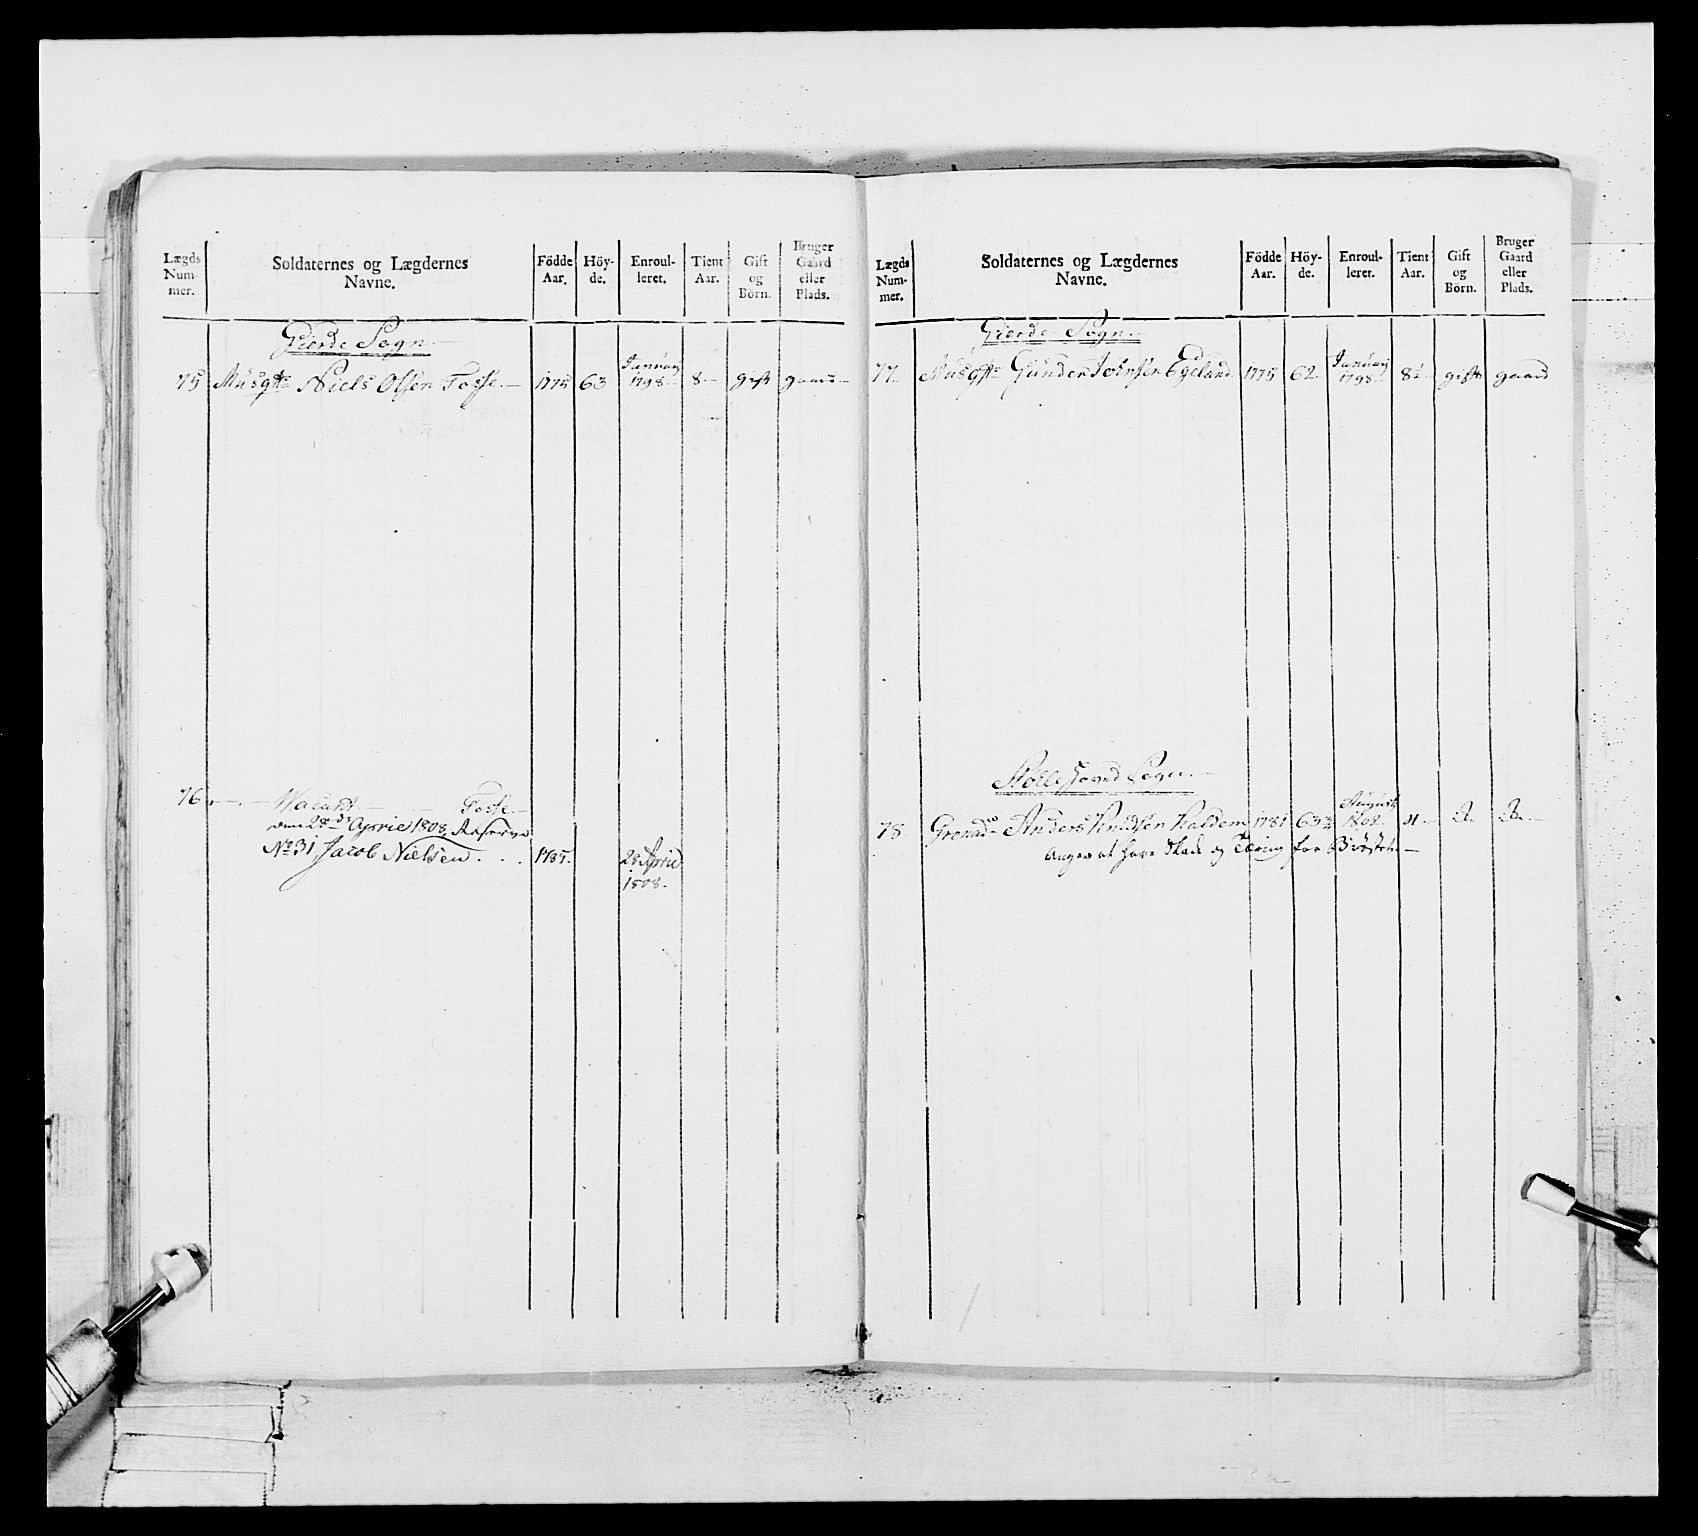 Lægds Num- mer.
Soldaternes og Lægdernes Navne.
Födde Aar.
Höy- de.
Enroul- leret.
Tient Aar.
Gift og Börn.
Bruger Gaard eller Plads.
Gierde Sogn
75 Musqtr Niels Olsen Fosse 1775 63 Januarij 1798 8 gift gaard
76 Vacant Fosse
den 28de April 1808, Reserve
No 31 Jacob Nielsen 1785 28 April
1808.
Lægds Num- mer.
Soldaternes og Lægdernes Navne.
Födde Aar.
Höy- de.
Enroul- leret.
Tient Aar.
Gift og Börn.
Bruger Gaard eller Plads.
Gierde Sogn
77 Musqtr Gunder Egeland 1775 62 Januarij 1798 8 gift gaard
Sogn
78 Grenad Anders Knudsen 1781 63 August 4
at have Skade og for Bröstet